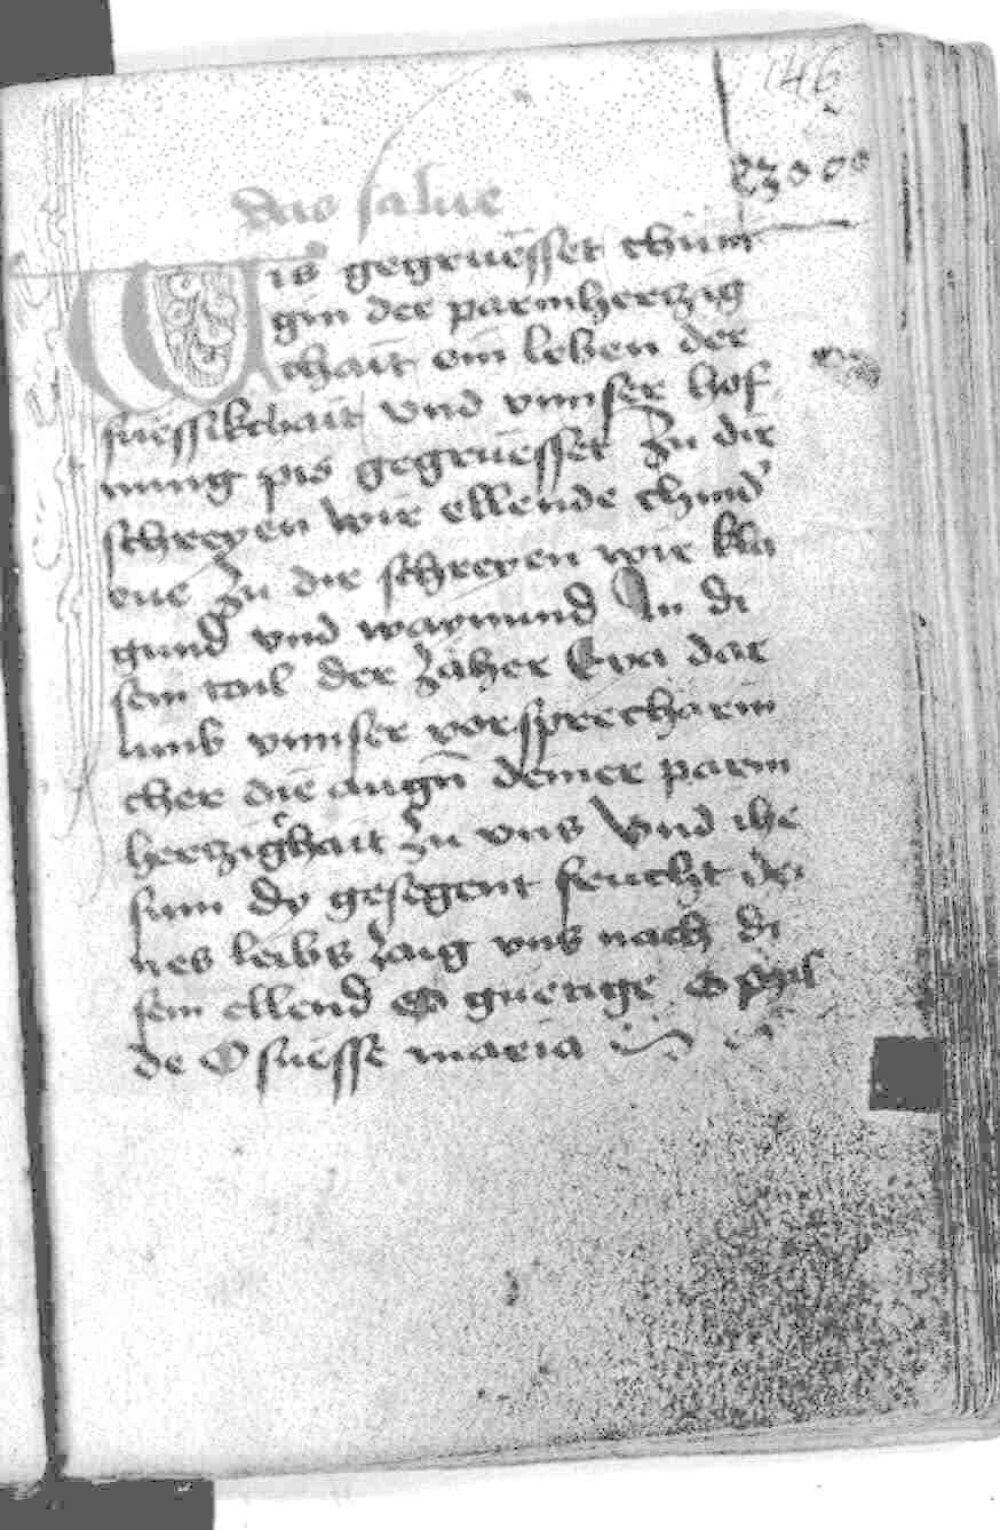 146
das salue
Wis gegruesset chuni
gin der parmhertzig
chait ein leben der
suessikchait vnd vnnser hof
nung pis gegruesset Zu dir
schreyen wir ellende chind
eue Zu dir schreyen wir kla
gund vnd waynund In di
sem tail der Zäher Eya dar
umb vnnser vorsprecharin
cher die augn deiner parm
hertzigkait Zu vns Vnd ihe
sum dy gesegent frucht dei
nes leibs Zaig vns nach di
sem ellend O guetige O mil
de O suesse maria